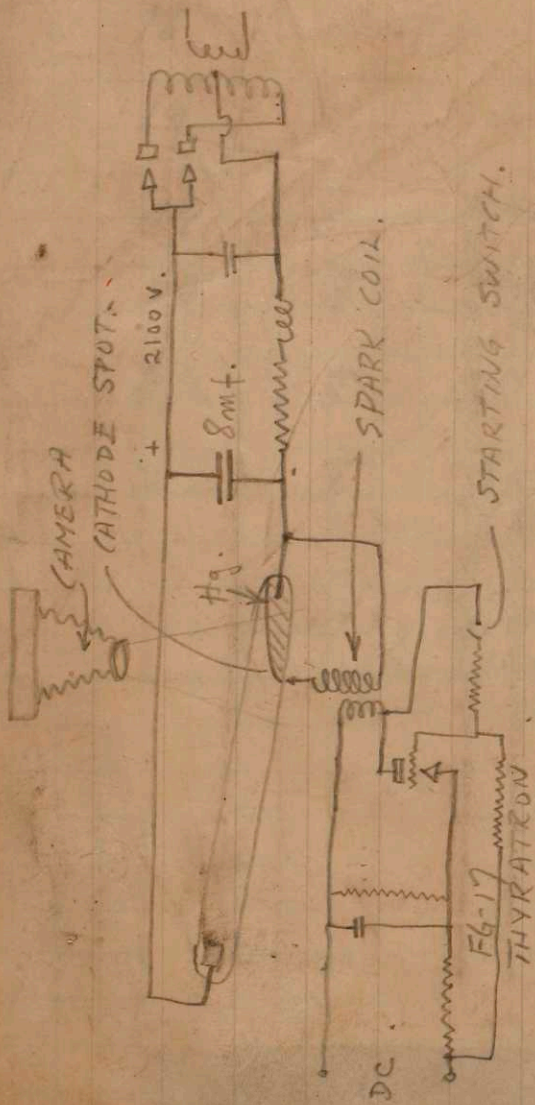 CAMERA
CATHODE SPOT.
+ 2100 V.
Hg.
8mf.
SPARK COIL.
STARTING SWITCH.
DC.
FG-17
THYRATRON